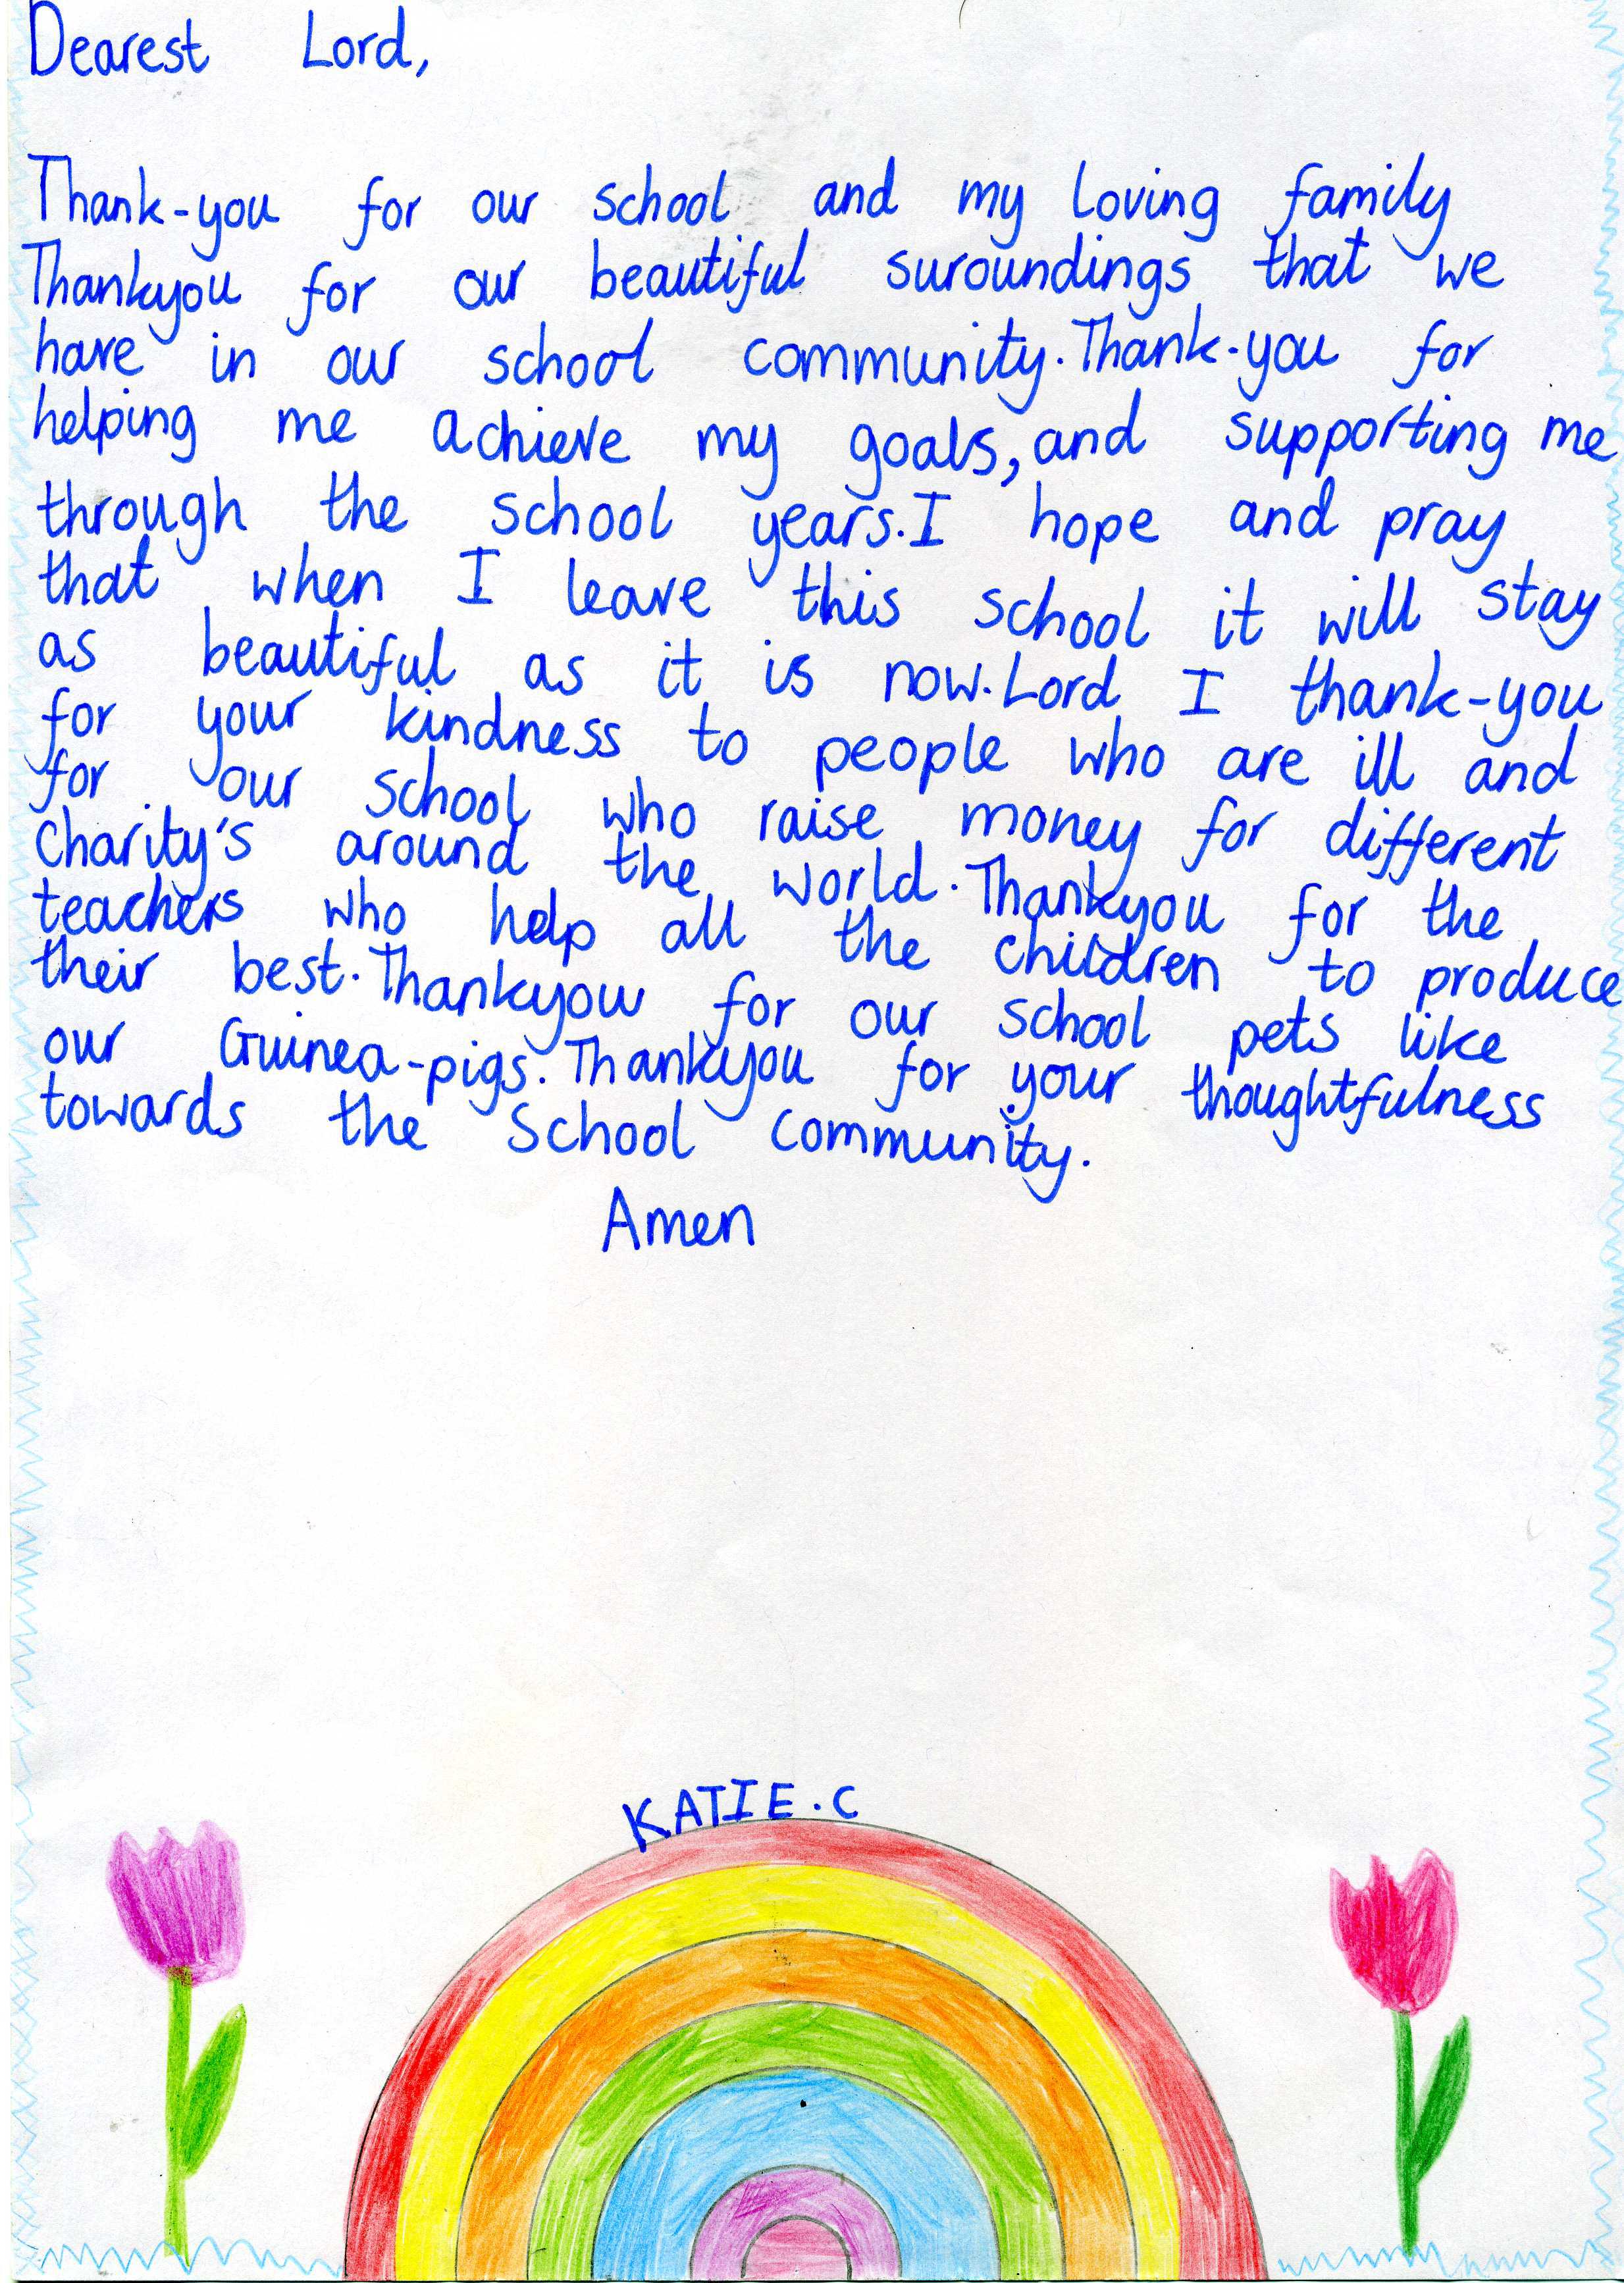 Dearest Lord,
Thank-you for our school and my loving family
Thankyou for our beautiful suroundings that we
have in our school community. Thank-you for
helping me achieve my goals, and supporting me
through the school years. I hope and pray
that when I leave this school it will stay
as beautiful as it is now. Lord I thank-you
for your kindness to people who are ill and
for our school who raise money for different
charity's around the world. Thankyou for the
teachers who help all the children to produce
their best. Thankyou for our school pets like
our Guinea-pigs. Thankyou for your thoughtfulness
towards the School community.
Amen
KATIE.C